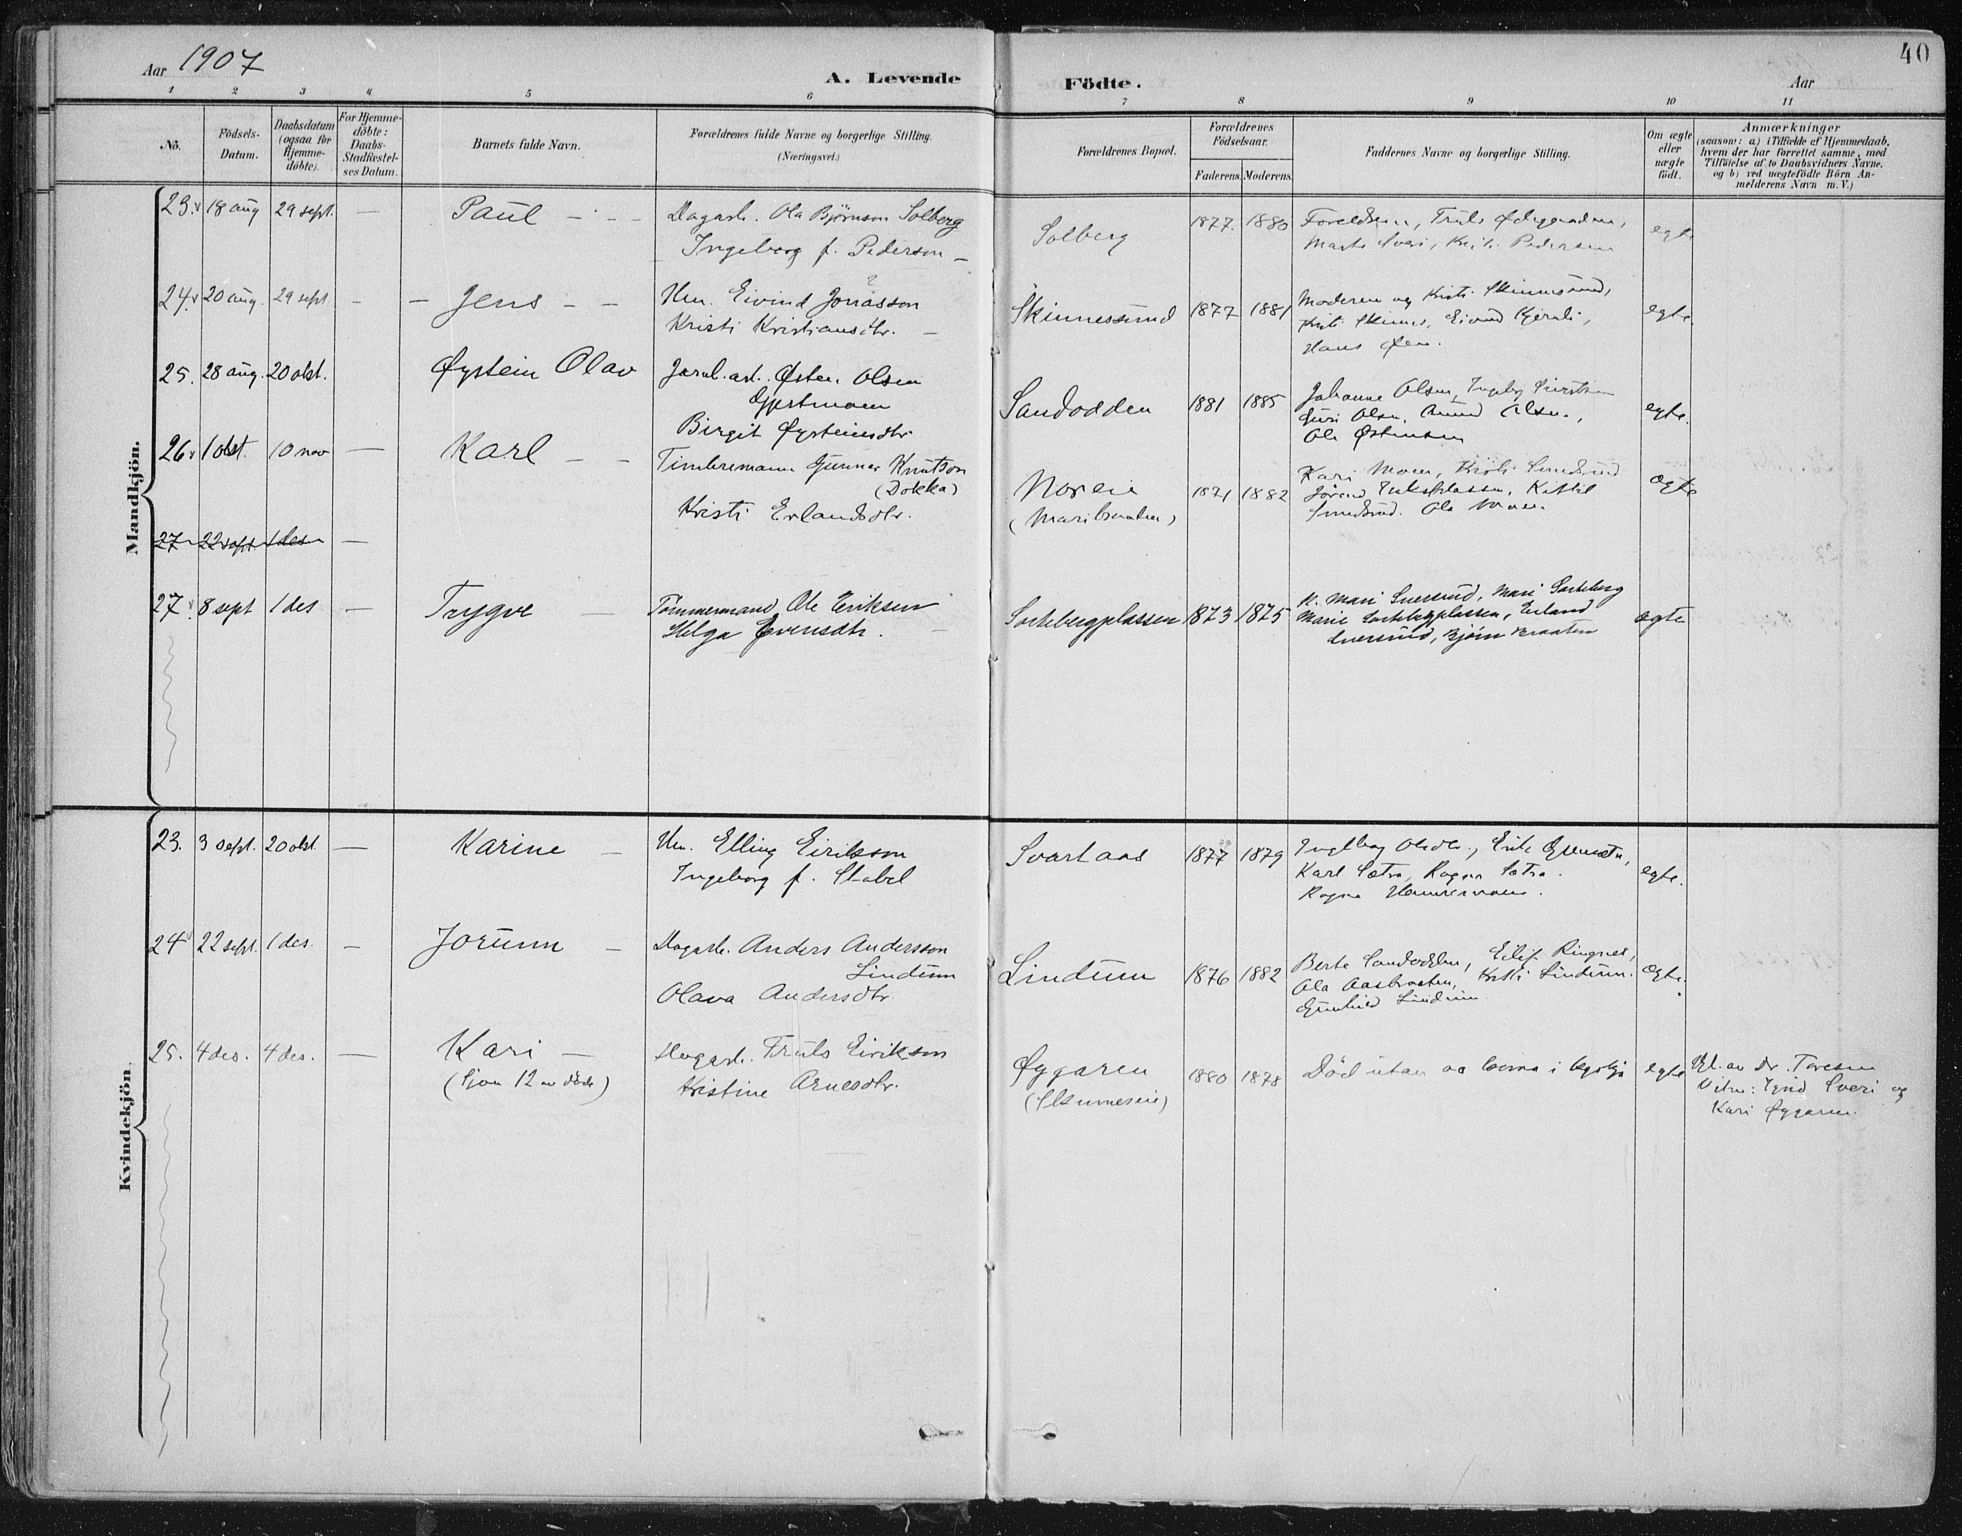 Aar 1907
A. Levende
Födte.
Aar
40
1 2 3 4 5 6 7 8 9 10 11
No.
Födsels-
Datum.
Daabsdatum
(ogsaa for
Hjemme-
döbte).
For Hjemme-
döbte:
Daabs-
Stadfæstel-
ses Datum.
Barnets fulde Navn.
Forældrenes fulde Navne og borgerlige Stilling.
(Næringsvei.)
Forældrenes Bopæl.
Forældrenes
Födselsaar.
Faderens. Moderens.
Faddernes Navne og borgerlige Stilling.
Om ægte
eller
uægte
födt.
Anmærkninger
(saasom: a) i Tilfælde af Hjemmedaab,
hvem der har forrettet samme, med
Tilföielse af to Daabsvidners Navne.
og b) ved uægtefödte Börn An-
melderens Navn m. V.)
Mandkjön.
23. 18 aug 29 sept. — Paul — Dagarb. Ola Bjørnson Solberg
Ingeborg f. Pederson —
Solberg 1877. 1880 Foreldrene, Truls
Marte Sveri, Kristi Pedersen
egte
24. 20 aug. 29 sept. — Jens — Um. Eivind Jonasson
Kristi Kristiansdtr. —
Skinnessund 1877 1881 Moderen og Kristi Skinnessund,
Kristi Skinnes, Eivind
Hans Øen.
egte.
25. 28 aug. 20 okt. Øystein Olav Jarnb.arb. Østen Olsen
Gjertmoen
Birgit Øysteinsdtr
Sandodden 1881 1885 Johanne Olsen, Ingebg
Guri Olsen, Amund Olsen,
Ole Østensen
egte.
26 1 okt. 10 nov — Karl — Timbremann Gunnar Knutson
(Dokka)
Kristi Erlandsdtr.
Noreie
(Maribraaten)
1871 1882 Kari Moen, Kristi
Jørend, Kittil
Ola Moen.
egte
27 22 sept 1 des —
27. 8 sept 1 des — Trygve — Tømmermand Ole Eriksen
Helga Evensdtr. —
Sorkebergplassen 1873 1875 K. Mari Sversund, Mari Sorteberg
Marie Sortebergplassen, Erland
Sversund, Bjørn Braaten
ægte
Kvindekjön
23. 3 sept. 20 okt — Karine — Um. Elling Eirikson
Ingeborg f. Stabel
Svartaas 1877 1879 Ingeborg Olsdtr.,
Karl Sætra, Ragna Sætra.
Ragna
egte.
24 22 sept. 1 des. — Jorunn — Dagarb. Anders Anderson
Lindum
Olava Andersdtr.
Lindum 1876 1882 Berte Sandodden, Eilif Ringnes,
Ola Aasbraaten, Kristi Lindum.
Gunhild Lindum
egte.
25. 4 des. 4 des. — Kari —
(Tjon 12 av døde)
Dagarb. Truls Eirikson
Kristine Arnesdtr.
Øygaren
(Skinneseie)
1880 1878 Død utan aa koma i kyrkja egte Utf. av Dr. Toresen
Vitne: Sveri og
Kari Øygaren.